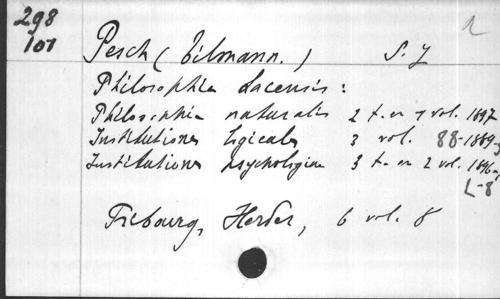 298
101
Pesch (Tilmann.) S. J
Philosophia Lacensis :
Philosophia naturalis 2 t. en 1 vol. 1897
Institutiones logicales 3 vol. 88-1889-
Institutiones psychologicae 3 t. en 2 vol. 1896-
L-8
Fribourg, Herder, 6 vol. 8